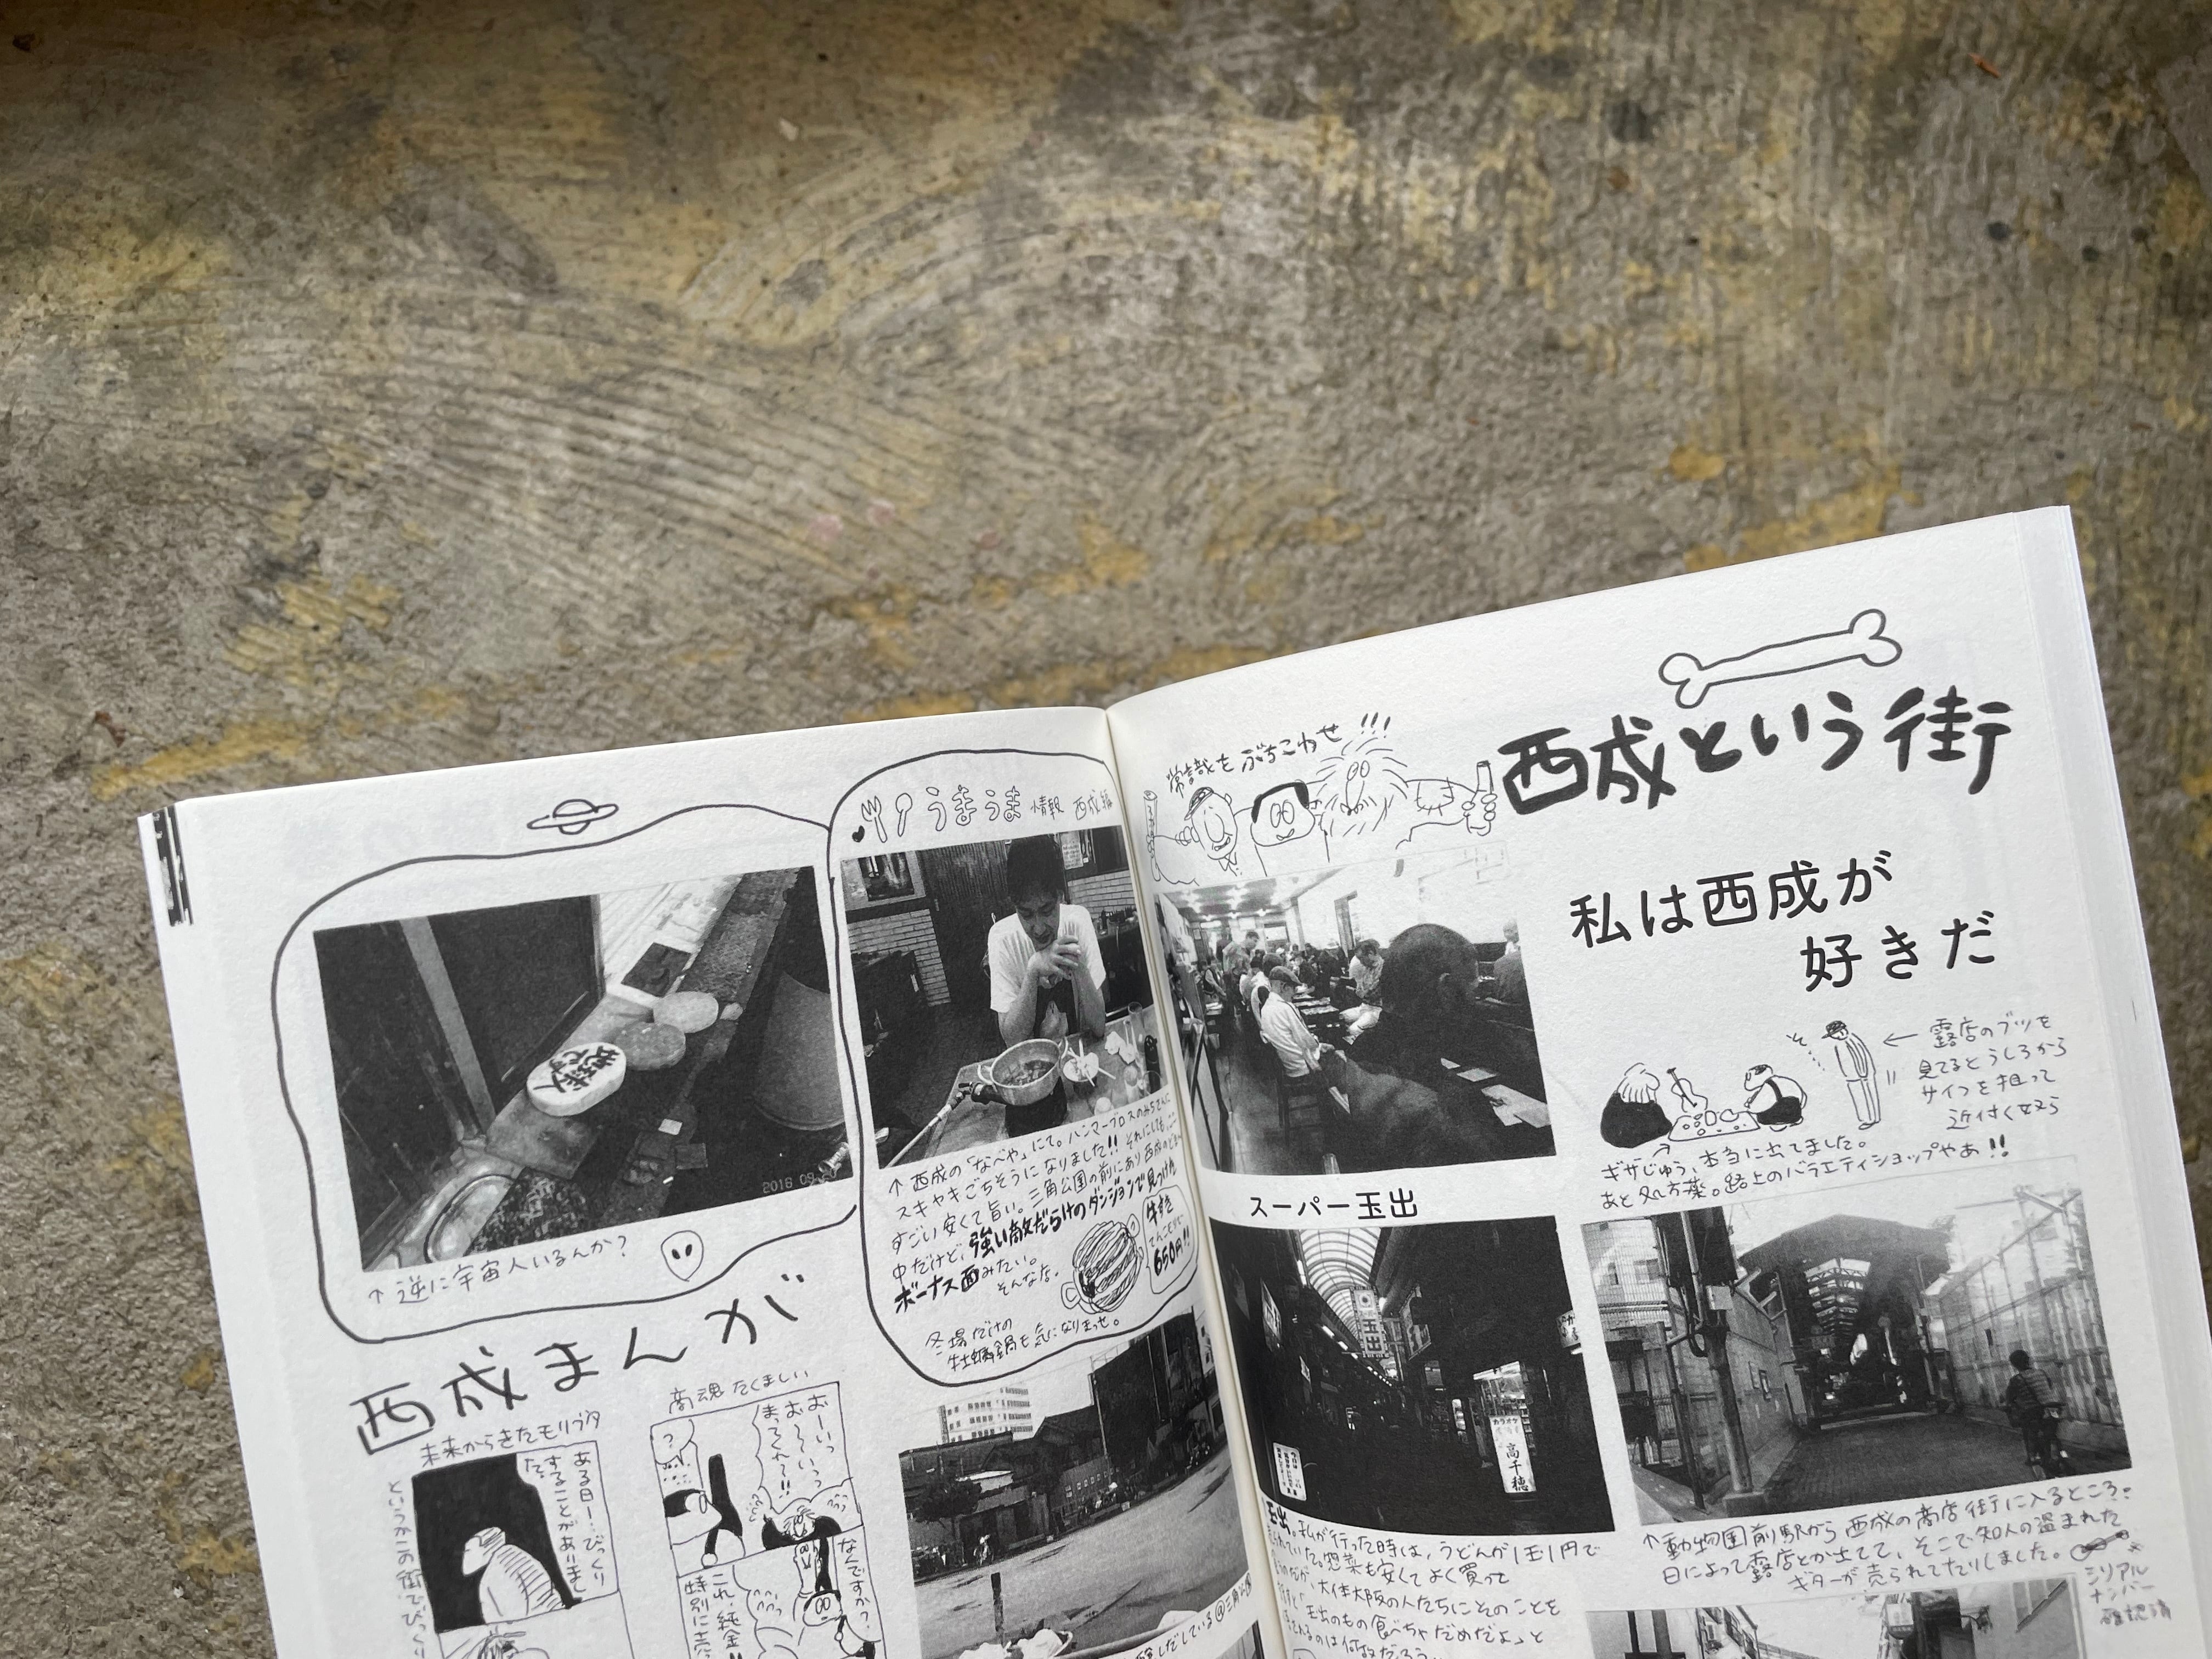 うまうま 情報 西成編
地球人
ですか
2016 09
↑ 逆に宇宙人いるんか?
↑ 西成の「なべや」にて。ハンマープロスのみちさんに
スキヤキごちそうになりました!! それにしても、ここ
すごい安くて旨い。三角公園の前にあり西成の
中だけど、強い敵だらけのダンジョンで見つけた
ボーナス面みたい。
そんなな。
650円!!
冬場だけの
牡蠣鍋も気になりまっせ。
西成まんが
未来からきたモリブタ
ある日…びっくり
することがありまし
た。
商魂たくましい
おーいっ
お〜いっ
まってくれ!!
?
なんですか?
これ、純金
特別に
常識をぶちこわせ!!!
西成という街
私は西成が
好きだ
← 露店のブツを
見てるとうしろから
サイフを狙って
近付く奴ら
ギザじゅう、本当に出てました。
あと処方薬。路上のバラエティショップやあ!!
スーパー玉出
玉出
カラオケ
高千穂
玉出。私が行った時は、うどんが1玉1円で
惣菜も安くてよく買って
大体大阪の人たちにそのことを
「玉出のもの食べちゃだめだよ」と
のは何故だろう
↑ 動物園前駅から西成の商店街に入るところ。
日によって露店とか出てて、そこで知人の盗まれた
ギターが売られてたりしました。
シリアル
ナンバー
確認済